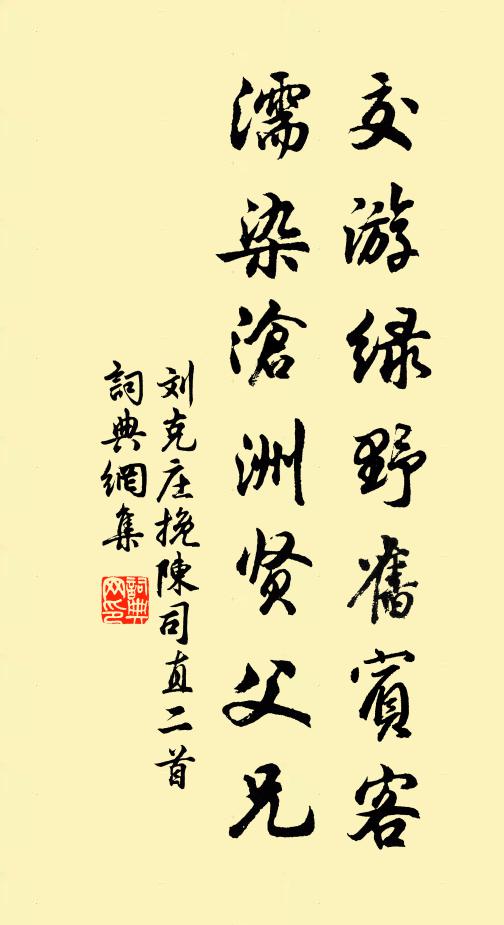 交游绿野舊賓客
濡染滄洲贤父兄
刘克庄挽陳司直二首
詞典網集
詞典网印